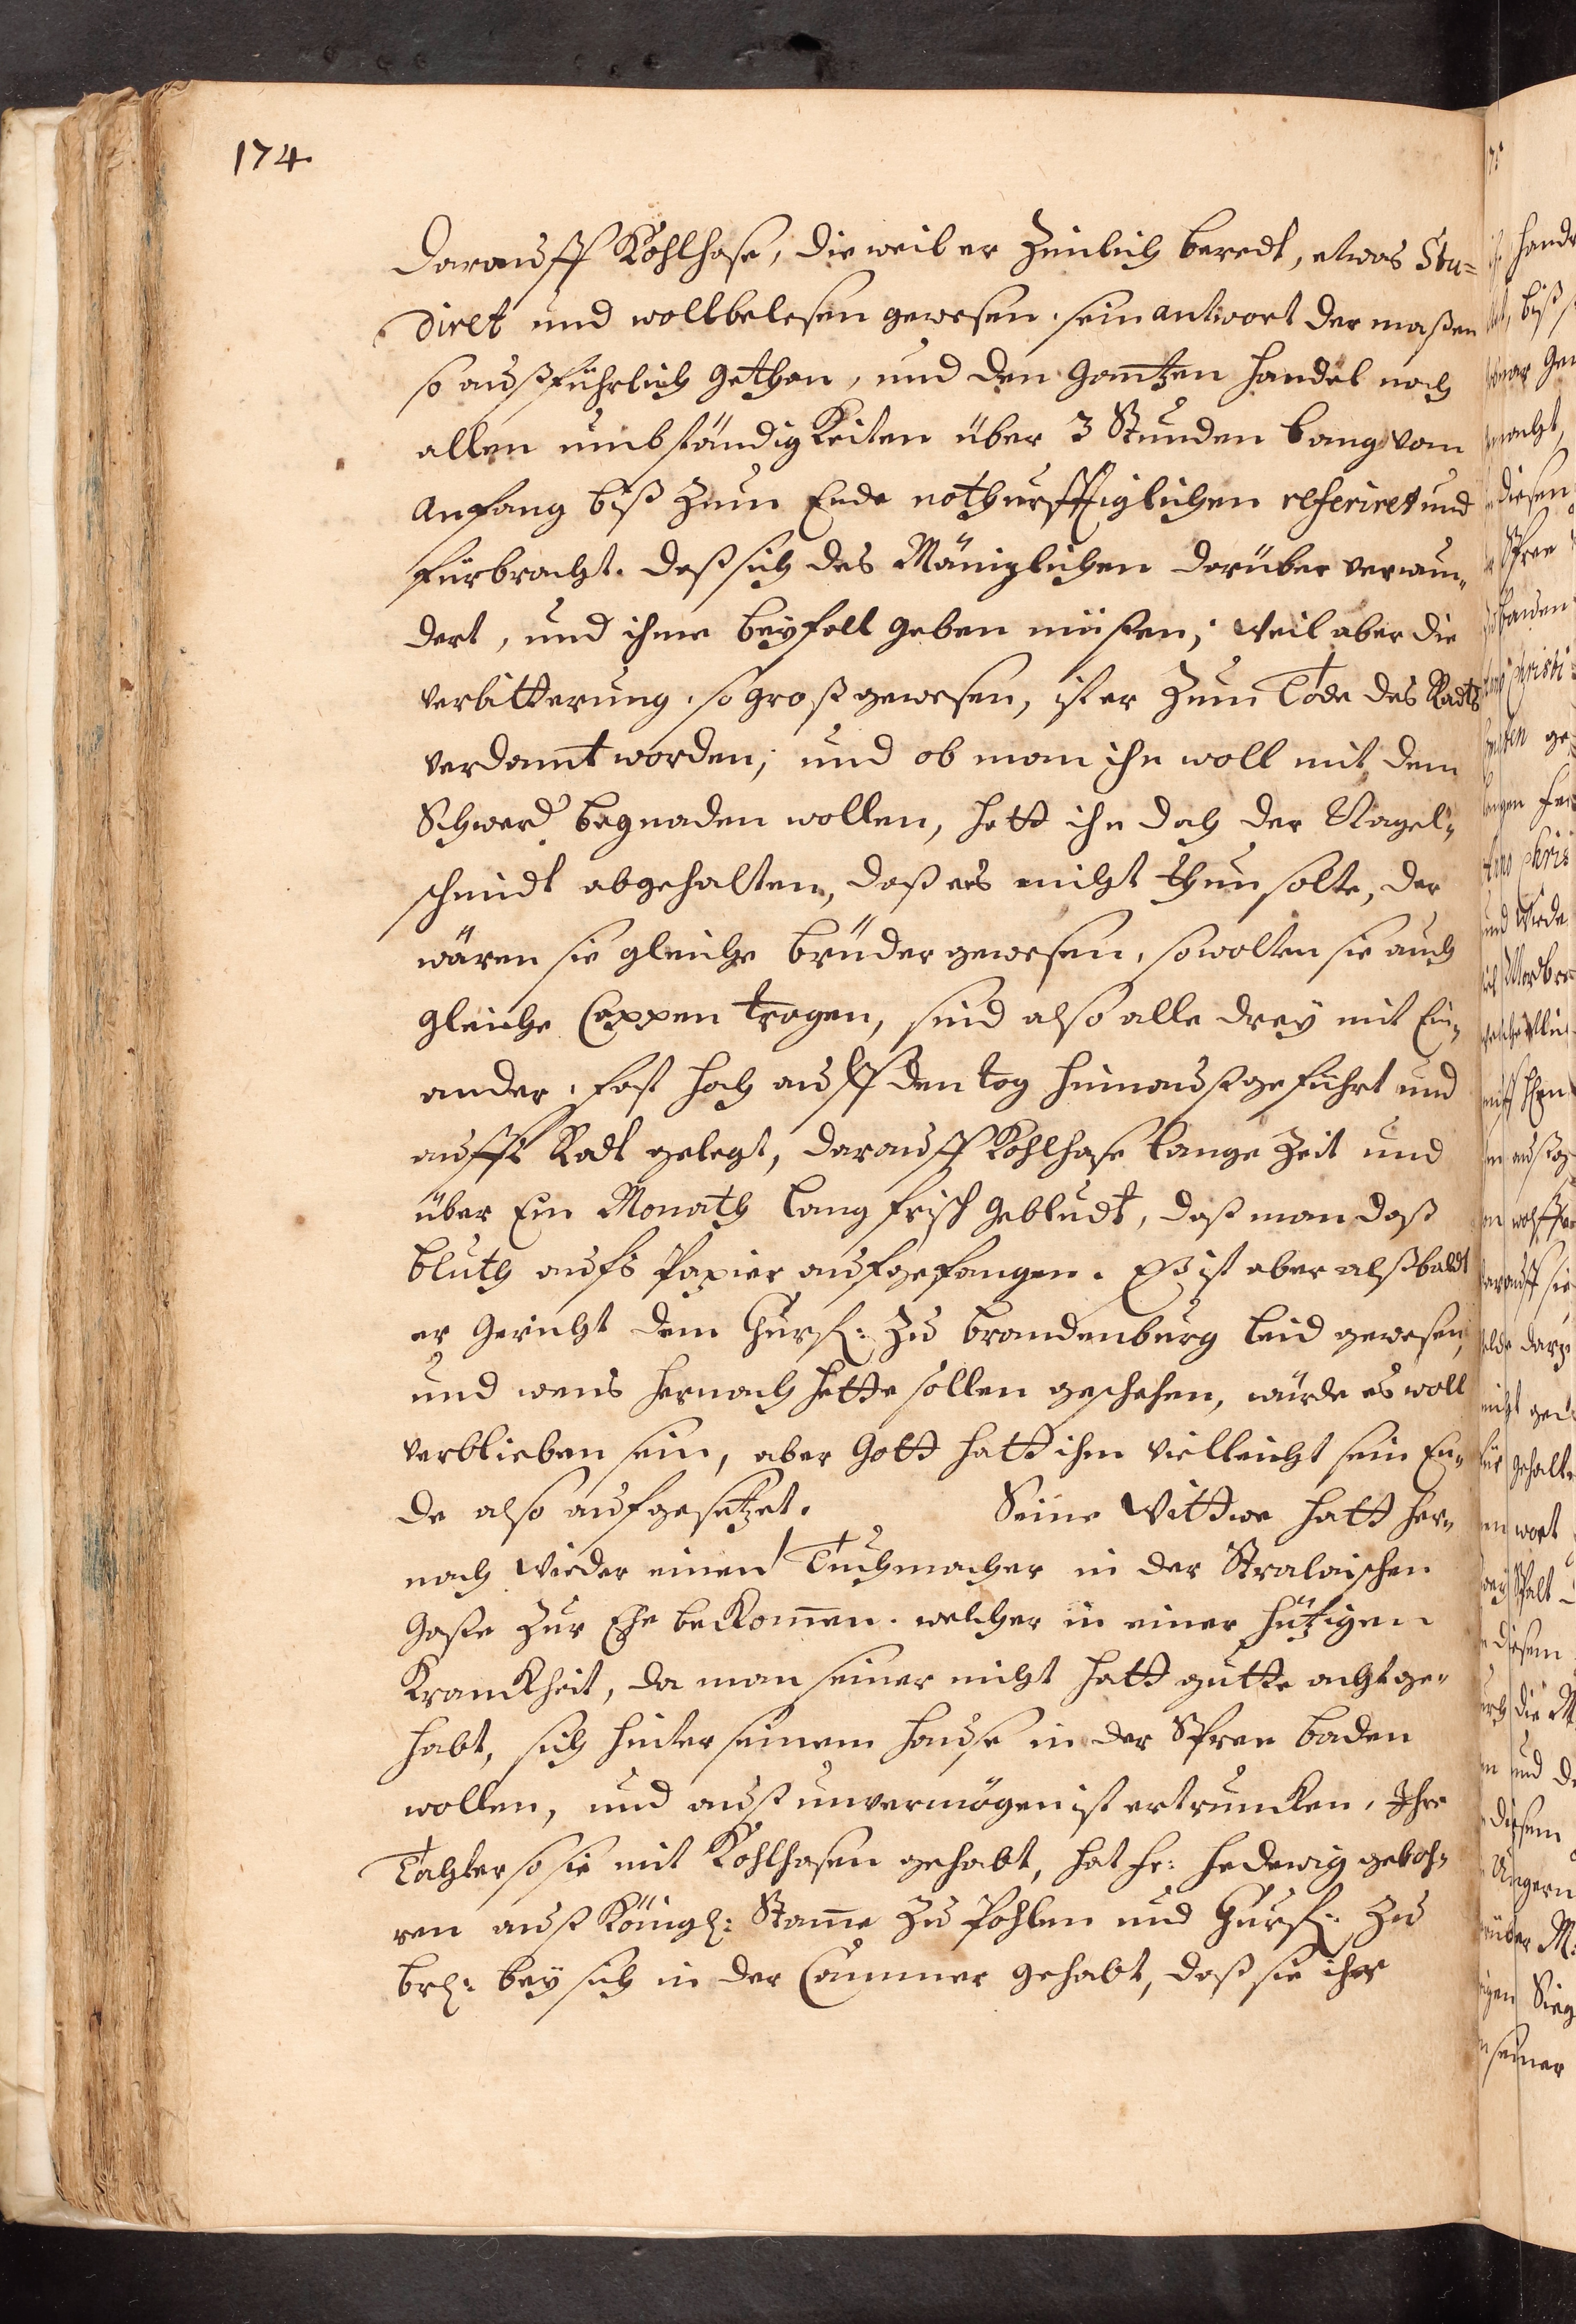 174.
Darauff Kohlhase, dieweil er Zimlich beredt, etwas Stu=
diret und wollbelesen gewesen. sein antwort dermaßen
so außführlich gethan, und den Gantzen handel nach
allen umbständigkeiten über 3 Stunden lang, vom
Anfang biß zum Ende nothurfftiglichen referiret und
fürbracht. daß sich des Mäniglichen darüber verwun=
dert, und ihme beyfall geben müßen; weil aber die
verbitterung so groß gewesen, ist er zum Tode des Radts
verdamt worden; und ob man ihn woll mit dem
Schwerd begnaden wollen, hatt ihn doch der Nagel=
schmidt abgehalten, daß ers nicht thun solte, der
wären sie gleiche brüder gewesen, so wolten sie auch
gleiche Cappen tragen, sind also alle drey mit Ein=
ander, fast hoch auff den tag hinausgeführt und
auffs Radt gelegt, darauff Kohlhase lange Zeit und
über Ein Monath lang frisch gebludt, daß man daß
bluth aufs Papier aufgefangen. Es ist aber alßbaldt
er Gericht dem Churf: zu brandenburg leid gewesen,
und wens hernach hette sollen geschehen, würde es woll
verblieben sein, aber Gott hatt ihm vielleicht sein En=
de also aufgesetzet. Seine Wittwe hatt her=
nach wieder einen Tuchmacher in der Stralaischen
Gaße zur Ehe bekommen. welcher in einer hützigen
Kranckheit, da man seiner nicht hatt gutte acht ge=
habt, sich hinter seinem hause in der Spree baden
wollen, und auß unvermögen ist ertruncken, Ihre
Tochter so sie mit Kohlhasen gehabt, hat fr: Hedewig geboh=
ren auß Königl: Stamme zu Pohlen und Churf: zu
brl: bey sich in der Cammer gehabt, daß sie ihr